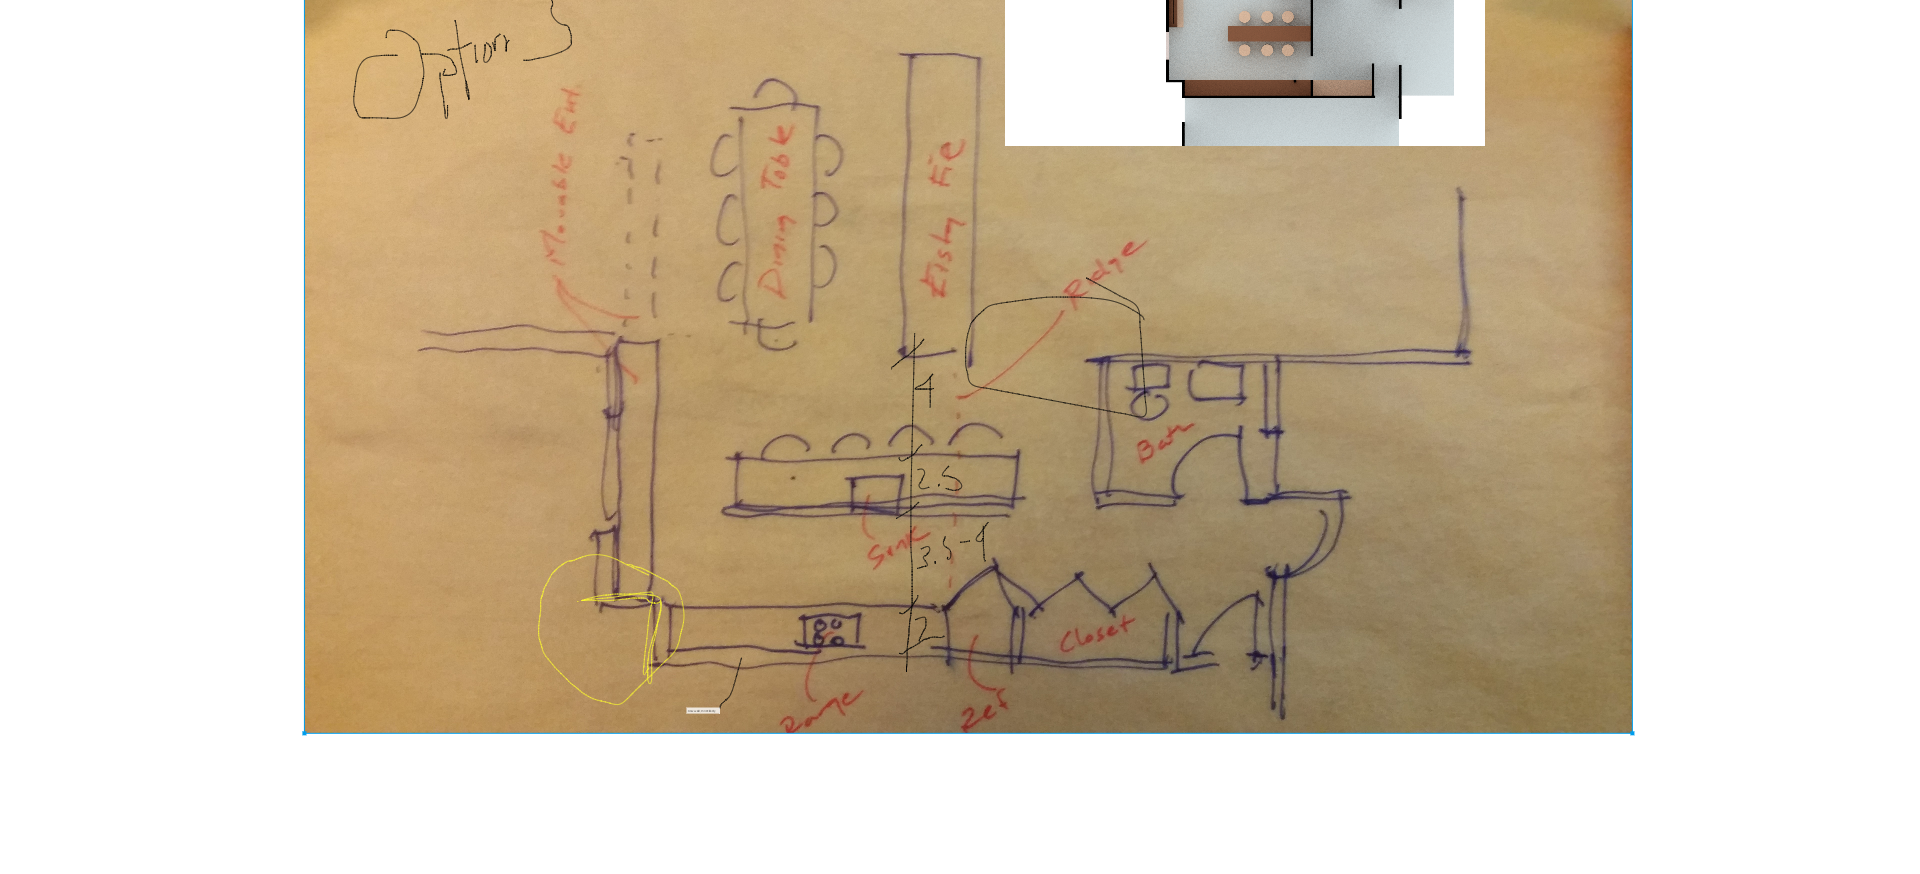 Option 3
Movable Ent.
Dining Table
Ridge
4
Bath
2.5
Sink
3.5-4
2
Closet
Range
Ref